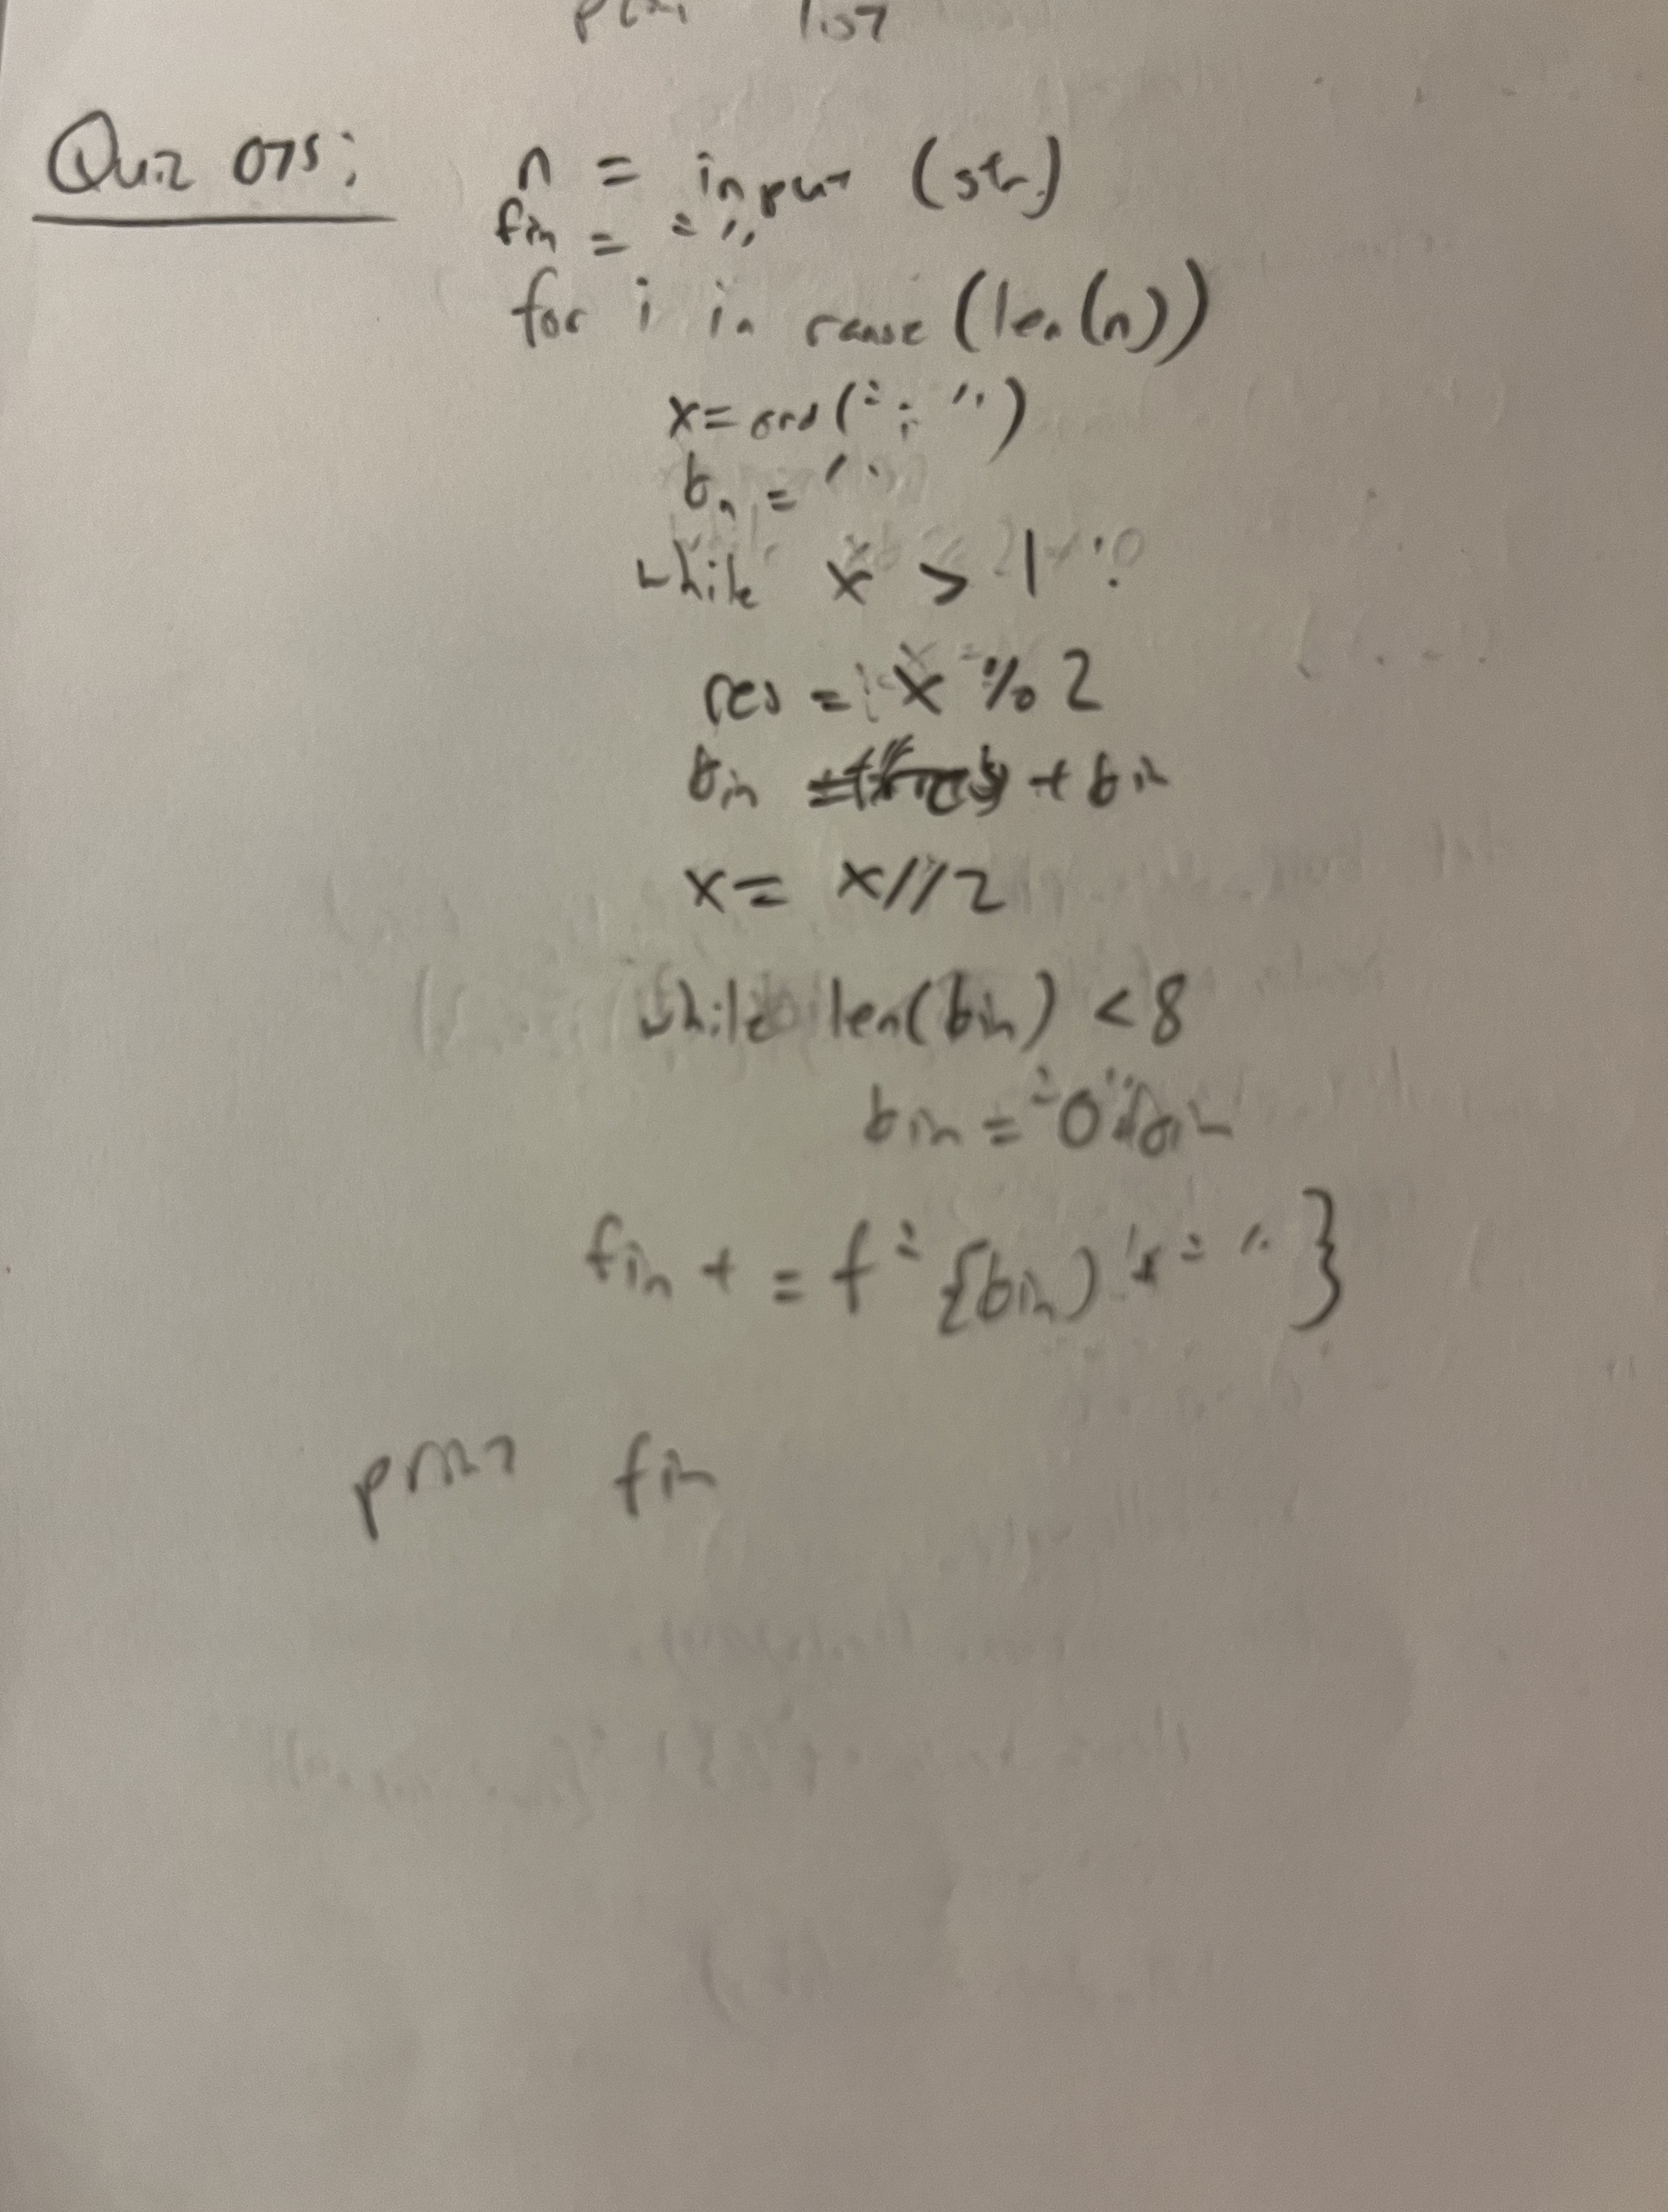 list
Quiz 075:
n = input (str)
fin = " "
for i in range (len(n))
x = ord(" i ")
bn = " "
while x > 1 :
res = x % 2
bin = + bin
x = x//2
while len(bin) < 8
bin = "0" + bin
fin + = f" {bin) " + " " }
print fin